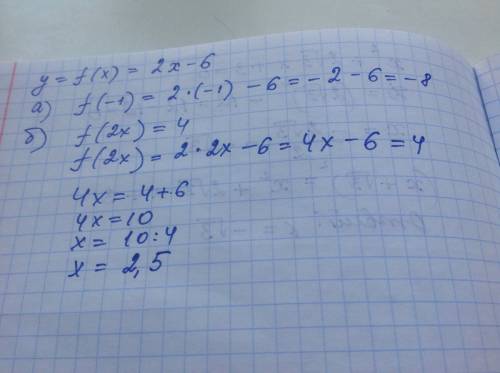 y = f(x) = 2x-6
а) f(-1) = 2·(-1) -6 = -2-6 = -8
б) f(2x) = 4
f(2x) = 2·2x-6 = 4x-6 = 4
4x = 4+6
4x = 10
x = 10:4
x = 2,5